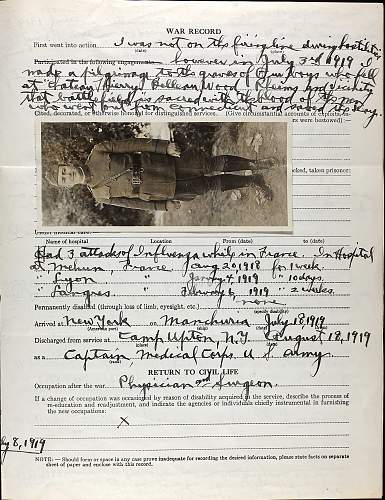 WAR RECORD
First went into action I was not on the firing line during hostilities
(date) (place)
Participated in the following engagements: however in July 3rd 1919 I
made a pilgrimage to the graves of our boys who fell
at "Chateau Thierry" Belleau Wood Rheims and vicinity
that battlefield is sacred with the blood of the men
who went and from Connecticut and saved the day.
Cited, decorated, or otherwise honored for distinguished services. (Give circumstantial accounts of exploits
rs were bestowed):
cked, taken prisoner:
Name of hospital Location From (date) to (date)
Had 3 attacks of Influenza while in France. In Hospital
at Mehun, France. Aug 20, 1918 for 1 week.
" Lyon 1919 " 10 days.
" Langres. February 6, 1919 " 2 weeks.
Permanently disabled (through loss of limb, eyesight, etc.) none
(specify disability)
Arrived at New York on Manchuria July 18, 1919
(American port) (ship) (date)
Discharged from service at Camp Upton, N.Y. August 18, 1919
(place) (date)
as a Captain, Medical Corps, U.S. Army.
(rank)
RETURN TO CIVIL LIFE
Occupation after the war Physician and Surgeon.
If a change of occupation was occasioned by reason of disability acquired in the service, describe the process of
re-education and readjustment, and indicate the agencies or individuals chiefly instrumental in furnishing
the new occupations:
X
8, 1919
NOTE: — Should form or space in any case prove inadequate for recording the desired information, please state facts on separate
sheet of paper and enclose with this record.